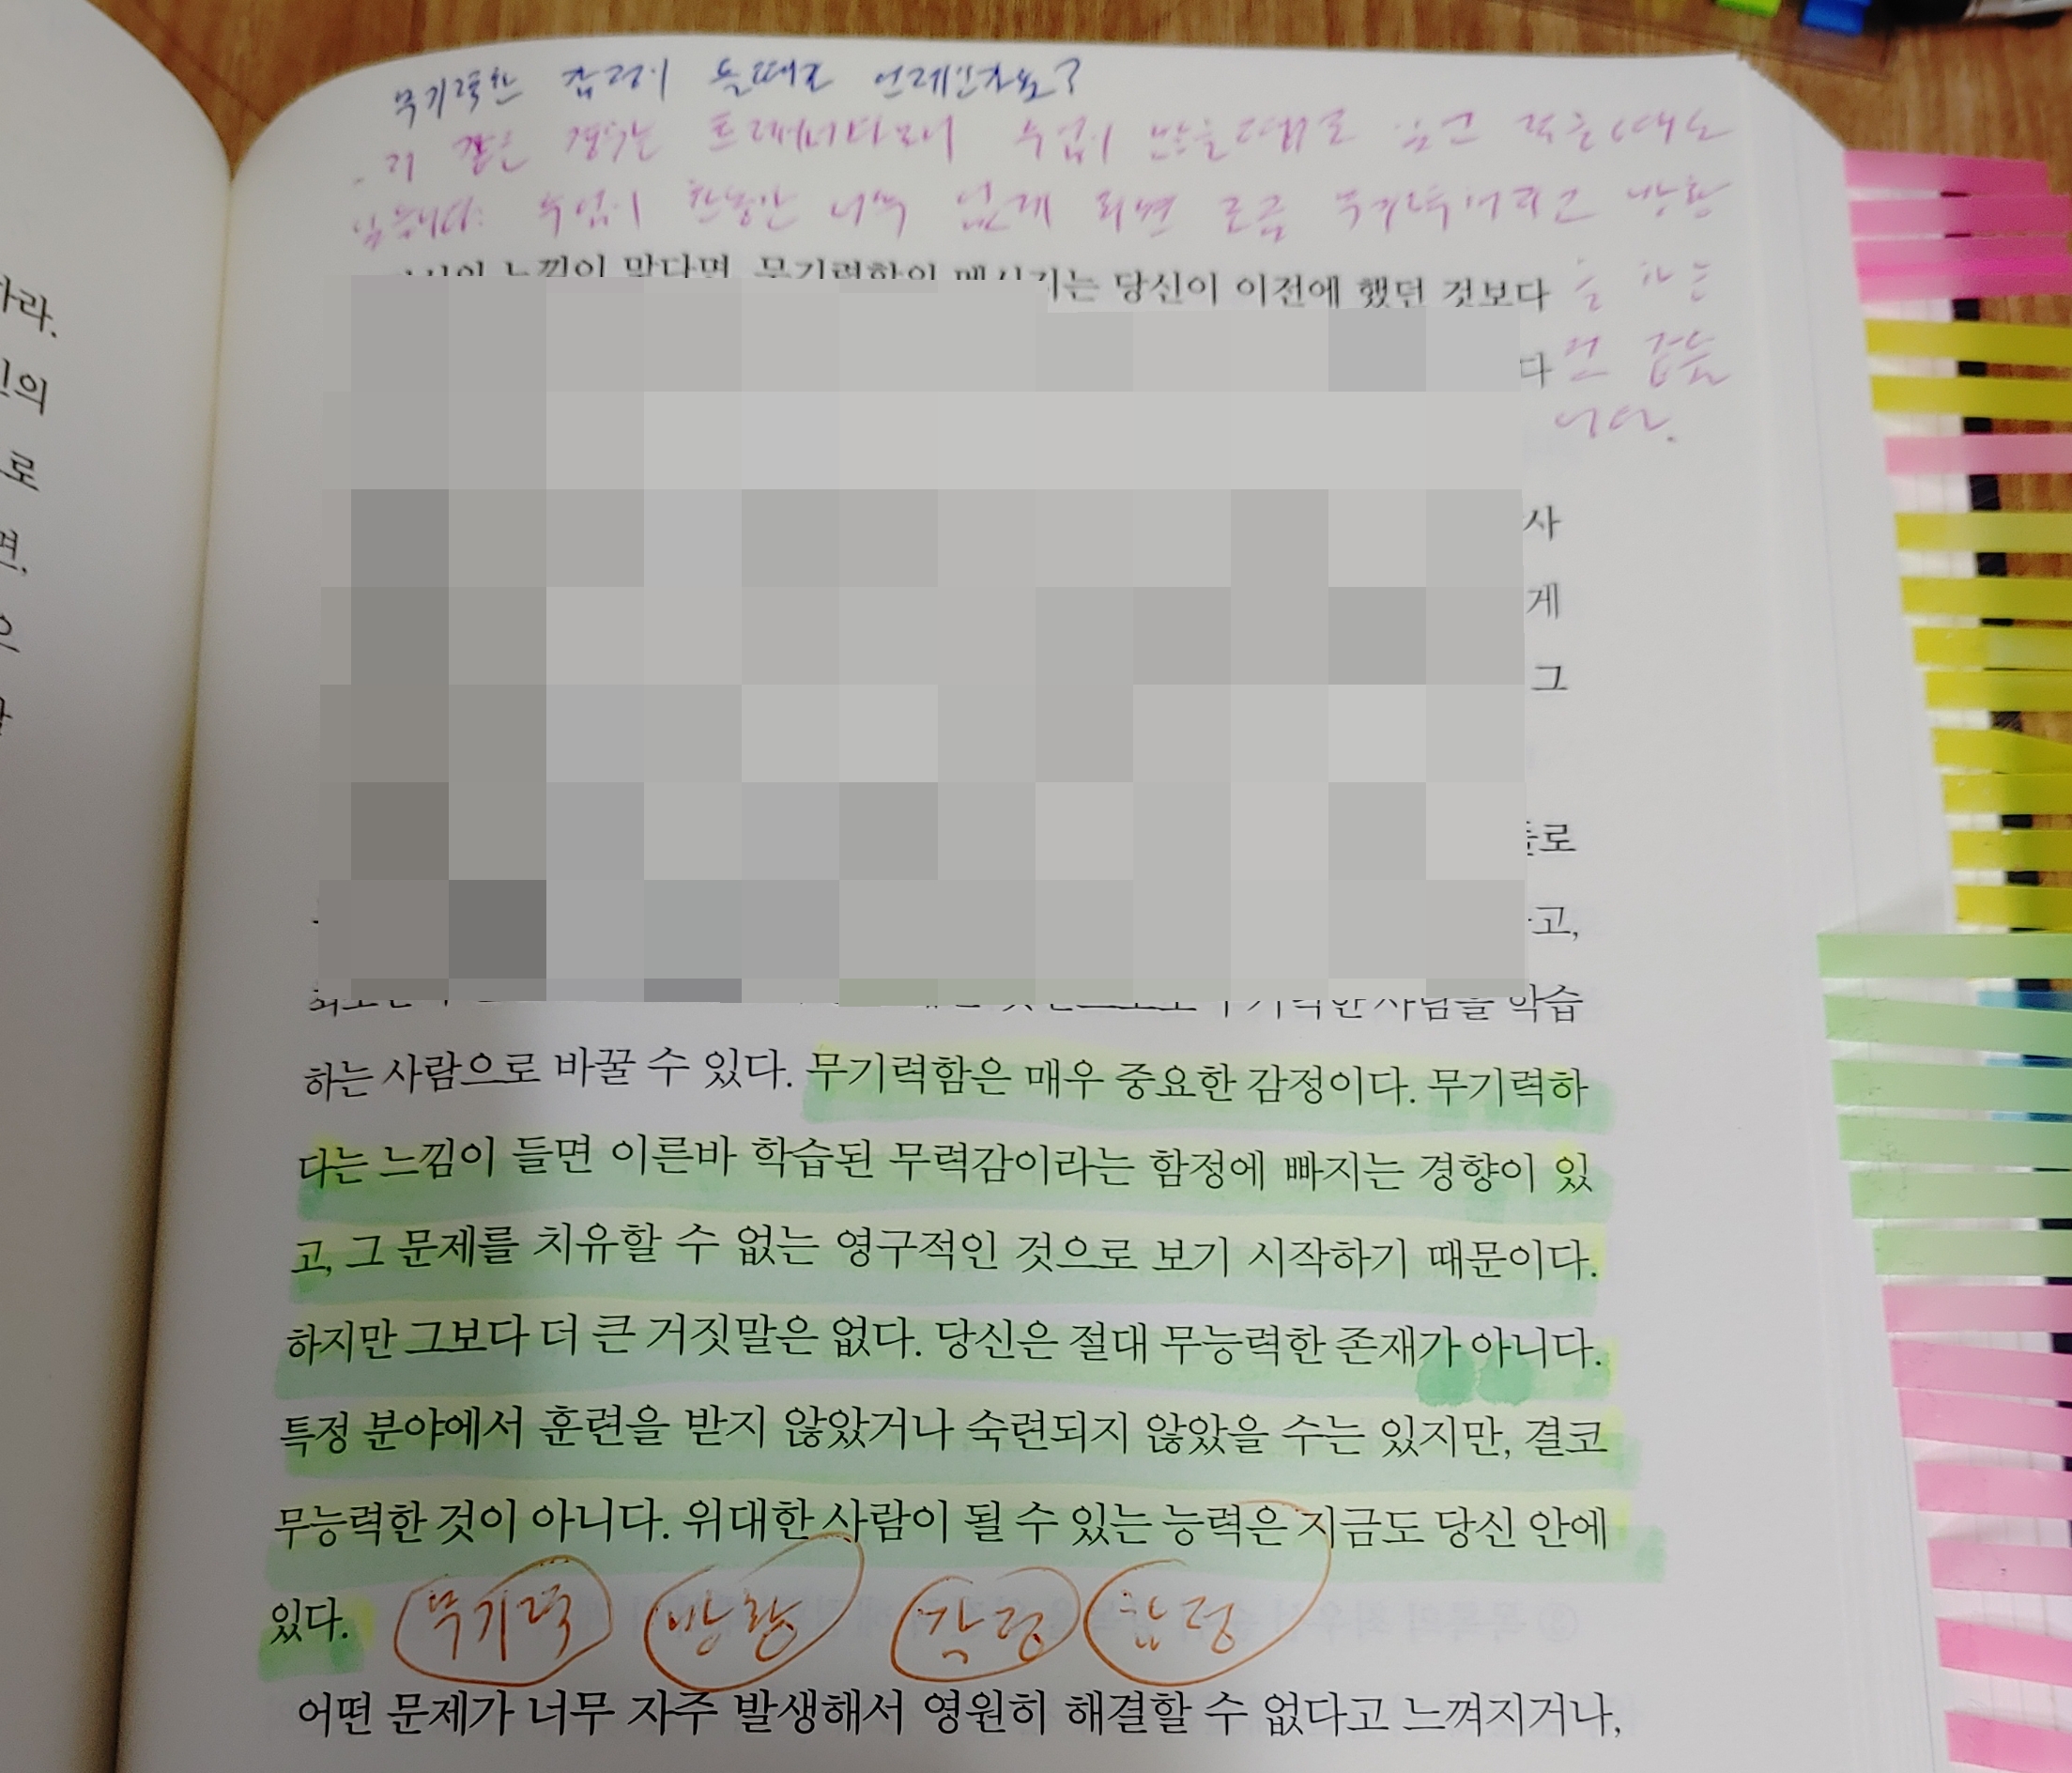 무기력한 감정이 들때로 언제인가요?
저 같은 경우는 트레이너다보니 수업이 많을때도 있고 적을때도
있습니다. 수업이 한동안 너무 없게 되면 조금 무기력해지고 방황
을 하는
것 같습
니다.
느낌이 맞다면, 무기력함의 메시지는 당신이 이전에 했던 것보다
다
사
게
그
들로
고,
무기력한 사람을 학습
하는 사람으로 바꿀 수 있다. 무기력함은 매우 중요한 감정이다. 무기력하
다는 느낌이 들면 이른바 학습된 무력감이라는 함정에 빠지는 경향이 있
고, 그 문제를 치유할 수 없는 영구적인 것으로 보기 시작하기 때문이다.
하지만 그보다 더 큰 거짓말은 없다. 당신은 절대 무능력한 존재가 아니다.
특정 분야에서 훈련을 받지 않았거나 숙련되지 않았을 수는 있지만, 결코
무능력한 것이 아니다. 위대한 사람이 될 수 있는 능력은 지금도 당신 안에
있다. 무기력 방황 감정 함정
어떤 문제가 너무 자주 발생해서 영원히 해결할 수 없다고 느껴지거나,
라.
의
로
면,
으